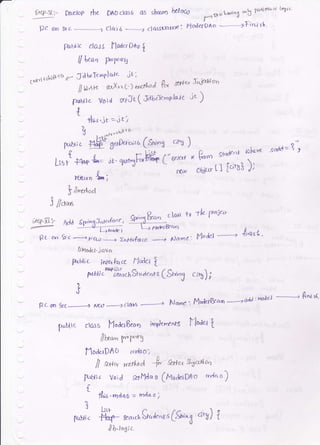 Step-5:- Develop the DAO class as shown below
DAO having only persistence logic
RC on src → class → classname: ModelDAO → Finish.
public class ModelDAO {
// bean property
JdbcTemplate jt;
// write setXxx(-) method for setter Injection
public void setJt ( JdbcTemplate jt )
{
this.jt = jt;
}
public Map getDetails (String city) {
List = jt.queryForList ("select * from student where sadd=?",
new Object [] {city});
return
} // method
} // class
Add SpringInterface, SpringBean class to the project
Model
ModelBean
RC on src → new → Interface → Name: Model → finish.
Model.java
public interface Model {
public searchStudents (String city);
}
RC on src → new → class → Name: ModelBean → add: model → finish
public class ModelBean implements Model {
// bean property
ModelDAO mdao;
// setter method for setter Injection
public void setMdao (ModelDAO mdao)
{
this.mdao = mdao;
}
List
public Map searchStudents (String city) {
// b.logic